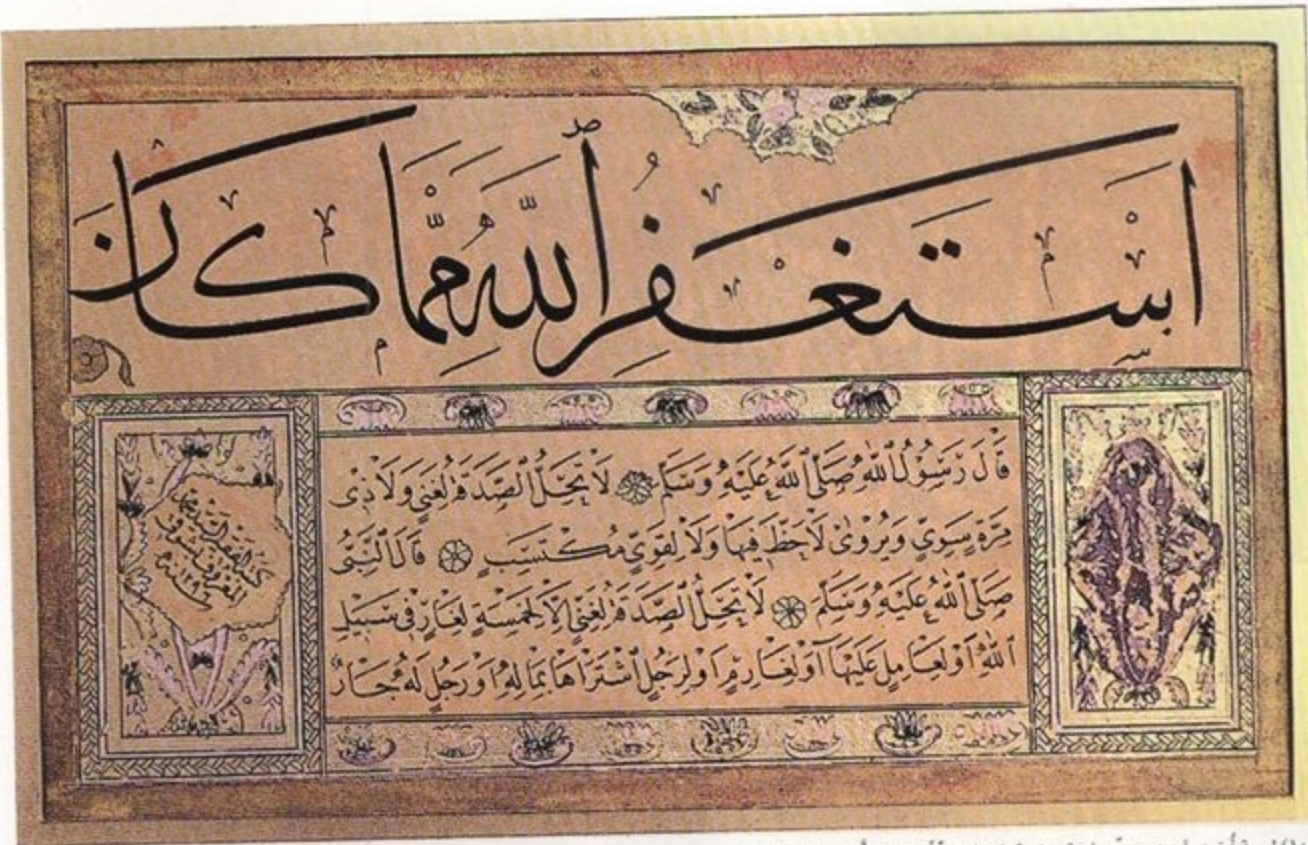 اَسْتَغْفِرُ ٱللّٰهَ مِمَّا كَانَ
قَالَ رَسُولُ اللّٰهِ صَلَّى ٱللّٰهُ عَلَيْهِ وَسَلَّمَ لَا تَحِلُّ الصَّدَقَةُ لِغَنِيٍّ وَلَا ذِى
مِرَّةٍ سَوِيٍّ وَيُرْوٰى لَا حَظَّ فِيهَا وَلَا لِقَوِيٍّ مُكْتَسِبٍ قَالَ النَّبِيُّ
صَلَّى ٱللّٰهُ عَلَيْهِ وَسَلَّمَ لَا تَحِلُّ الصَّدَقَةُ لِغَنِيٍّ اِلَّا لِخَمْسَةٍ لِغَازٍ فِى سَبِيلِ
ٱللّٰهِ اَوْ لِعَامِلٍ عَلَيْهَا اَوْ لِغَارِمٍ اَوْ لِرَجُلٍ اشْتَرَاهَا بِمَالِهِ اَوْ رَجُلٍ لَهُ جَارٌ
الفقير السيد محمد
المعروف